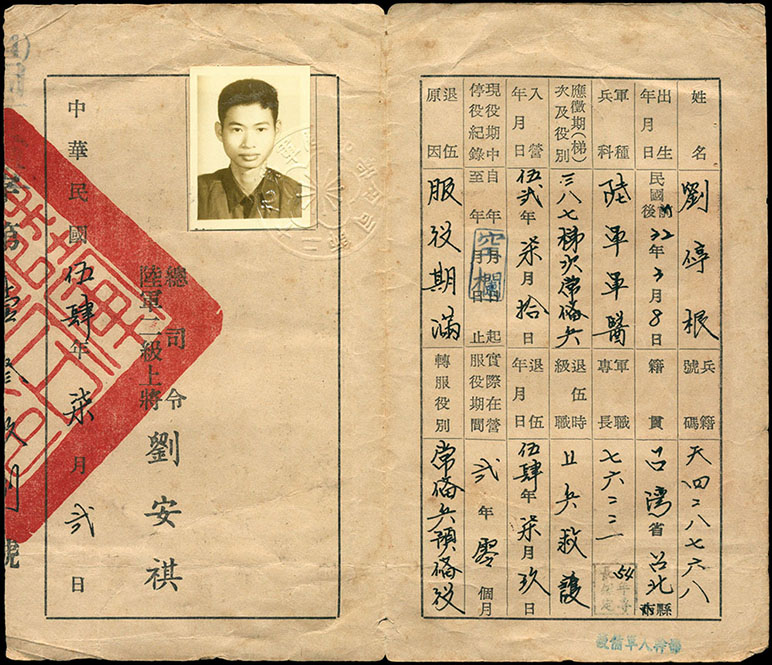 姓名 劉停根 兵籍號碼 天四二八七六八
出生年月日 民國前後32年3月8日 籍貫 台灣省台北縣市
軍種兵科 陸軍軍醫 軍職專長 七六二二一
應徵期(梯)次及役別 三八七梯次常備兵 退伍時級職 上兵救護
入營年月日 伍貳年柒月拾日 退伍年月日 伍肆年柒月玖日
現役期中停役紀錄 自年月日起至年月日止 空欄 實際在營服役期間 貳年零個月
退伍原因 服役期滿 轉服役別 常備兵預備役
總司令
陸軍二級上將 劉安祺
中華民國伍肆年柒月貳日
號